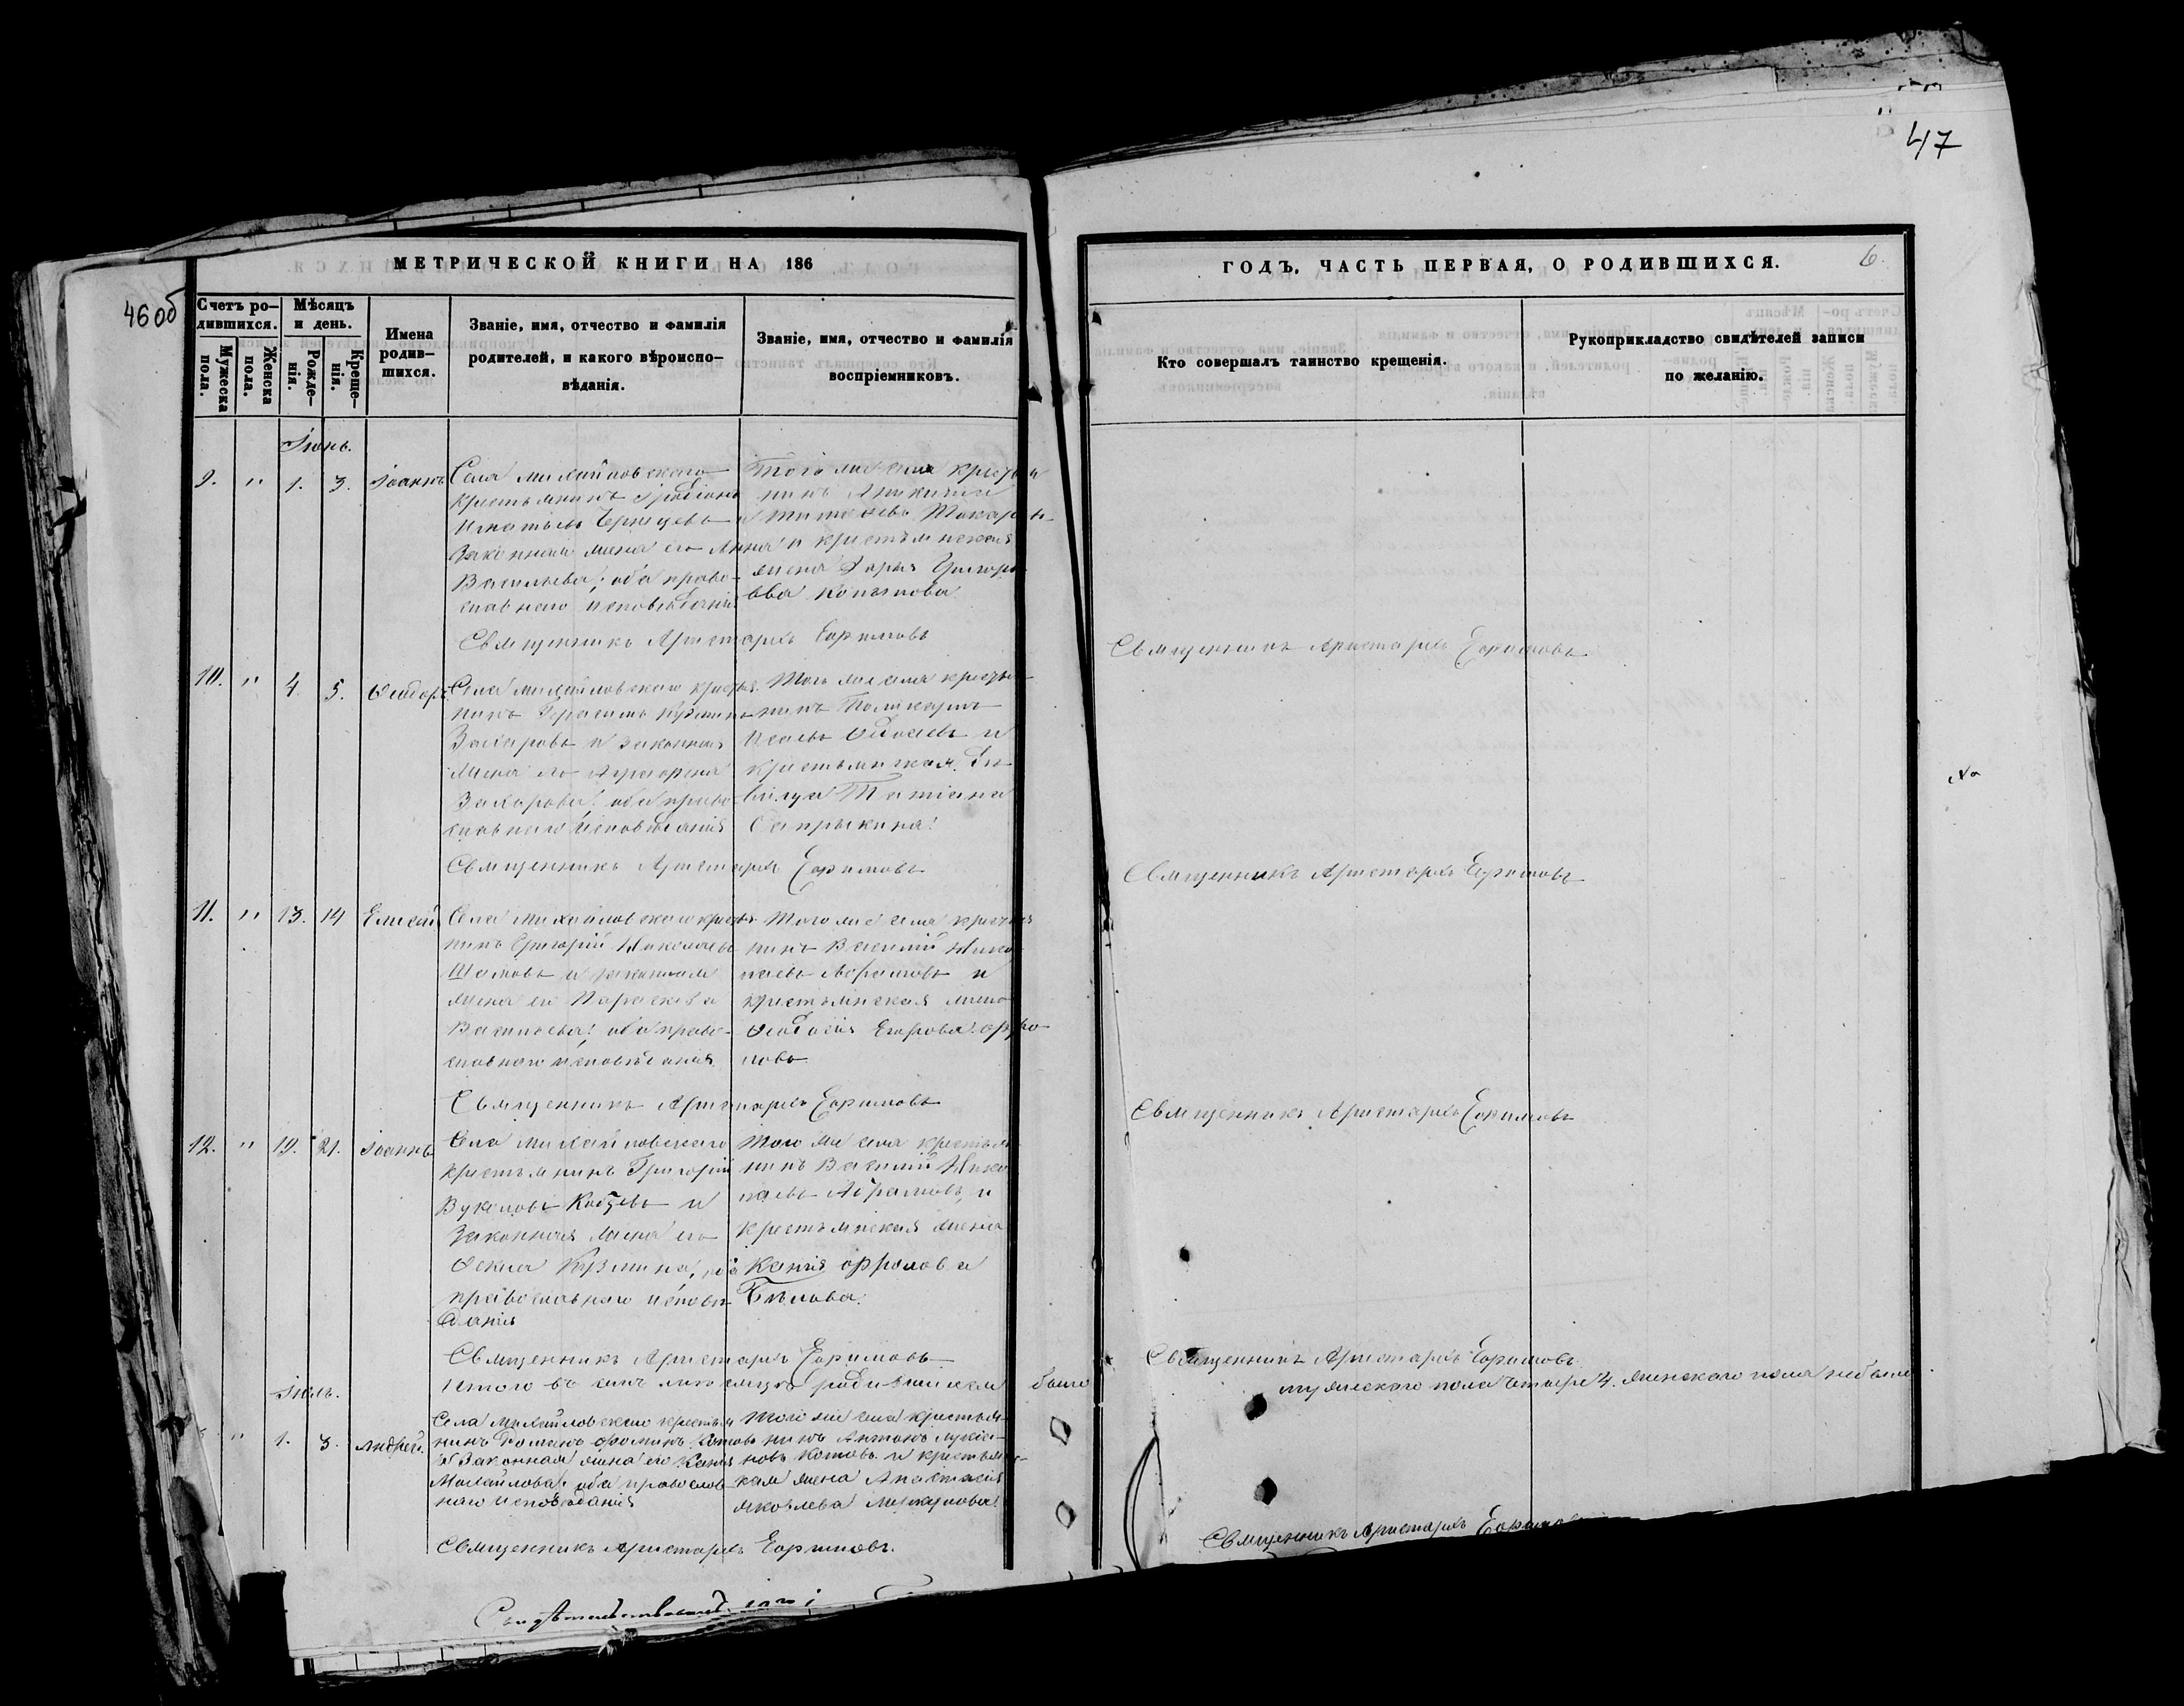 47
46 об
МЕТРИЧЕСКОЙ КНИГИ НА 186
Счетъ ро-
дившихся.
Мужеска
пола.
Женска
пола.
Мѣсяцъ
и день.
Рожде-
нія.
Креще-
нія.
Имена
родив-
шихся.
Званіе, имя, отчество и фамилія
родителей, и какого вѣроиспо-
вѣданія.
Званіе, имя, отчество и фамилія
воспріемниковъ.
ГОДЪ, ЧАСТЬ ПЕРВАЯ, О РОДИВШИХСЯ.
6.
Кто совершалъ таинство крещенія.
Рукоприкладство свидѣтелей записи
по желанію.
Іюнь.
9. " 1. 3. Іоаннъ
Села Михайловскаго
крестьянинъ
Игнатьевъ и
законная жена его Анна
Васильева; оба право-
славнаго исповѣданія
Того же села крестья
нинъ
Тимофеевъ Токаре
и крестьянская
жена Дарья Григорь
ева
Священникъ Аристархъ Ефимовъ
Священникъ Аристархъ Ефимовъ
10. " 4. 5. Ѳеодоръ
Села Михайловскаго крестья
нинъ Герасимъ Кузминъ
Захаровъ и законная
жена его Агрипена
Захарова; оба право-
славнаго исповѣданія
Того же села крестья-
нинъ Поликарпъ
и
крестьянская дѣ-
вица Татіана
Сапрыкина.
Священникъ Аристархъ Ефимовъ
Священникъ Аристархъ Ефимовъ
11. " 13. 14 Елисей
Села Михайловскаго крестья
нинъ Григорій Николаевъ
и законная
жена его Параскева
Васильева; оба право-
славнаго исповѣданія
Того же села крестья
нинъ Василій Нико
лаевъ Абрамовъ и
крестьянская жена
Ѳеодосія Егорова Фро-
лова
Священникъ Аристархъ Ефимовъ
Священникъ Аристархъ Ефимовъ
12. " 19. 21. Іоаннъ
Села Михайловскаго
крестьянинъ Григорій
Вуколовъ и
законная жена его
Ѳекла Кузмина, оба
православнаго исповѣ
данія
Того же села крестья
нинъ Василій Нико
лаевъ Абрамовъ и
крестьянская жена
Ксенія Фролова
Бѣлова.
Священникъ Аристархъ Ефимовъ
Священникъ Аристархъ Ефимовъ
Итого въ семъ мѣсяцѣ родившихся было
мужескаго пола четыре 4. женскаго пола не было
Іюль.
" 1. 3. Андрей.
Села Михайловскаго крестья
нинъ Фоминъ Котовъ
и законная жена его Ксенія
Михайлова; оба православ
наго исповѣданія
Того же села крестья-
нинъ Антонъ Лукія-
новъ Котовъ и крестьянс-
кая жена Анастасія
Яковлева
Священникъ Аристархъ Ефимовъ.
Священникъ Аристархъ